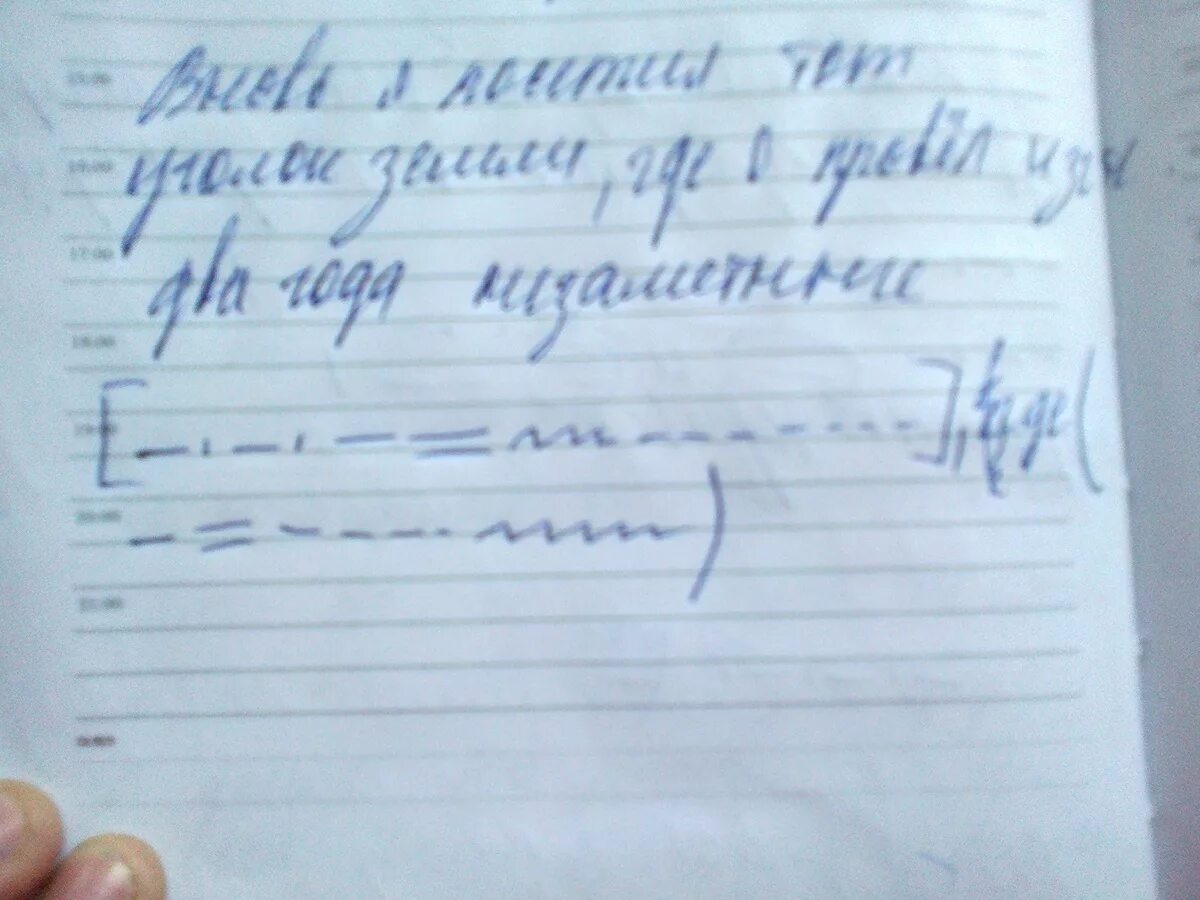 15:00
Вновь я посетил тот
16:00
уголок земли, где я провёл изгн
17:00
два года незаметных
18:00
19:00
[ ], где (
20:00
)
21:00